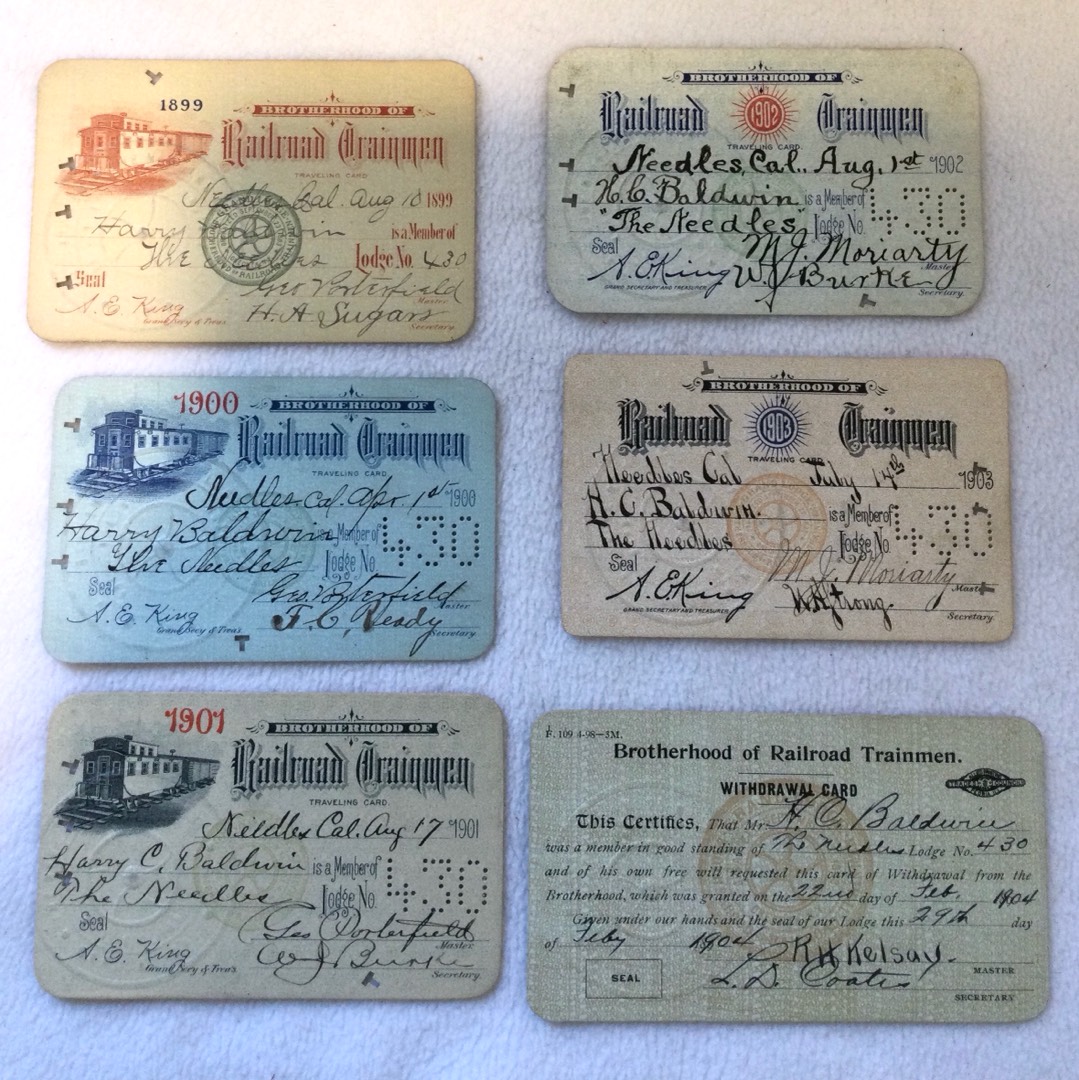 1899
BROTHERHOOD OF
Railroad Trainmen
TRAVELING CARD
Needles Cal. Aug 10 1899
Harry Baldwin is a Member of
The Needles Lodge No. 430
Seal Geo Porterfield
Master
A. E. King H. A Sugars
Grand Secy & Treas Secretary.
1900
BROTHERHOOD OF
Railroad Trainmen
TRAVELING CARD
Needles, Cal. Apr. 1st 1900
Harry Baldwin is a Member of
The Needles Lodge No. 430
Seal Geo. Porterfield
Master
A. E. King F. C. Ready
Grand Secy & Treas Secretary
1901
BROTHERHOOD OF
Railroad Trainmen
TRAVELING CARD.
Needles Cal. Aug 17 1901
Harry C. Baldwin is a Member of
The Needles Lodge No. 430
Seal Geo Porterfield
Master
A. E. King W J Burke
Grand Secy & Treas Secretary.
BROTHERHOOD OF
Railroad 1902 Trainmen
TRAVELING CARD.
Needles, Cal., Aug. 1st 1902
H. C. Baldwin is a Member of
"The Needles" Lodge No. 430
Seal M. J. Moriarty
Master
A. E. King W. J Burke
GRAND SECRETARY AND TREASURER Secretary.
BROTHERHOOD OF
Railroad 1903 Trainmen
TRAVELING CARD
Needles Cal July 14th 1903
H. C. Baldwin. is a Member of
The Needles Lodge No. 430
Seal M. J. Moriarty
Master
A. E. King W. Strong.
GRAND SECRETARY AND TREASURER Secretary.
F. 109 4-98—3M.
Brotherhood of Railroad Trainmen.
WITHDRAWAL CARD
This Certifies, That Mr. H. C. Baldwin
was a member in good standing of The Needles Lodge No. 430
and of his own free will requested this card of Withdrawal from the
Brotherhood, which was granted on the 22nd day of Feb. 1904
Given under our hands and the seal of our Lodge this 29th day
of Feby 1904 R H Kelsay.
MASTER
SEAL L. D. Coates
SECRETARY